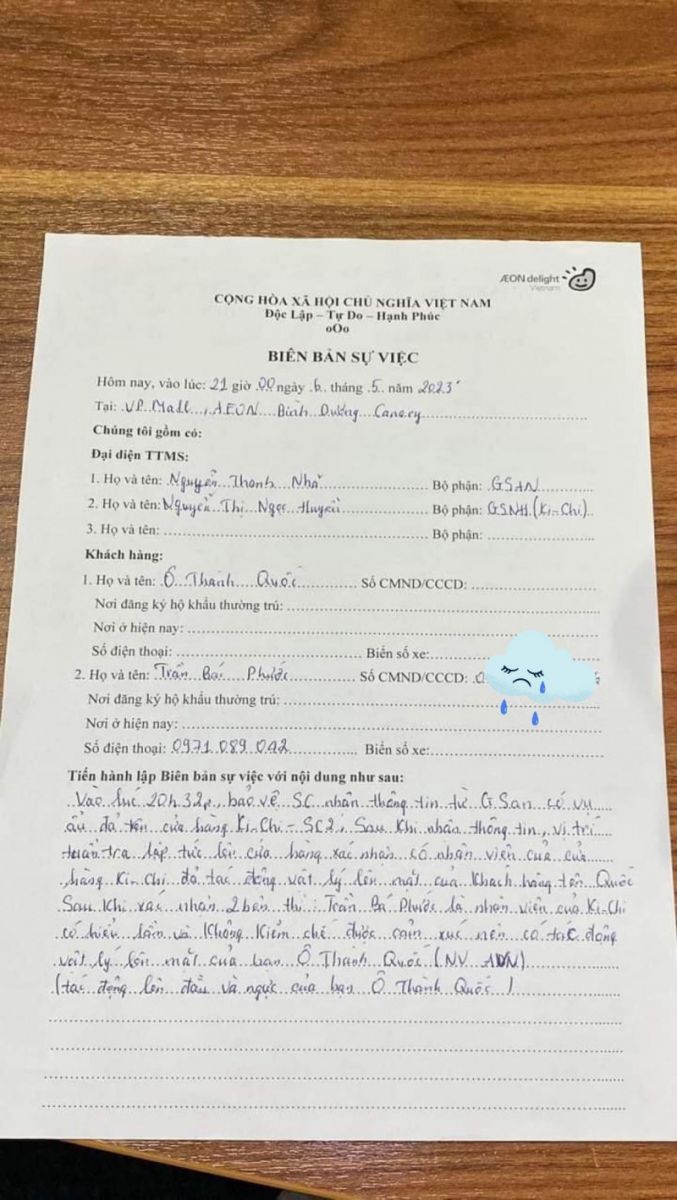 ÆON delight
Vietnam
CỘNG HÒA XÃ HỘI CHỦ NGHĨA VIỆT NAM
Độc Lập – Tự Do – Hạnh Phúc
oOo
BIÊN BẢN SỰ VIỆC
Hôm nay, vào lúc: 21 giờ 00 ngày 6 tháng 5 năm 2023
Tại: VP Mall, AEON Bình Dương Canary
Chúng tôi gồm có:
Đại diện TTMS:
1. Họ và tên: Nguyễn Thanh Nhã Bộ phận: GSAN
2. Họ và tên: Nguyễn Thị Ngọc Huyền Bộ phận: GSNH (Ki-Chi)
3. Họ và tên: Bộ phận:
Khách hàng:
1. Họ và tên: Ô Thành Quốc Số CMND/CCCD:
Nơi đăng ký hộ khẩu thường trú:
Nơi ở hiện nay:
Số điện thoại: Biển số xe:
2. Họ và tên: Trần Bá Phước Số CMND/CCCD:
Nơi đăng ký hộ khẩu thường trú:
Nơi ở hiện nay:
Số điện thoại: 0971.089.042 Biển số xe:
Tiến hành lập Biên bản sự việc với nội dung như sau:
Vào lúc 20h32p, bảo vệ SC nhận thông tin từ GSan có vụ
ẩu đả tên cửa hàng Ki-Chi - SC2, Sau khi nhận thông tin, vị trí
tuần tra lập tức lên cửa hàng xác nhận có nhân viên của cửa
hàng Ki-Chi đã tác động vật lý lên mặt của Khách hàng tên Quốc
Sau khi xác nhận 2 bên thì: Trần Bá Phước là nhân viên của Ki-Chi
có hiểu lầm và không kiềm chế được cảm xúc nên có tác động
vật lý lên mặt của bạn Ô Thành Quốc (NV ADN)
(tác động lên đầu và ngực của bạn Ô Thành Quốc)